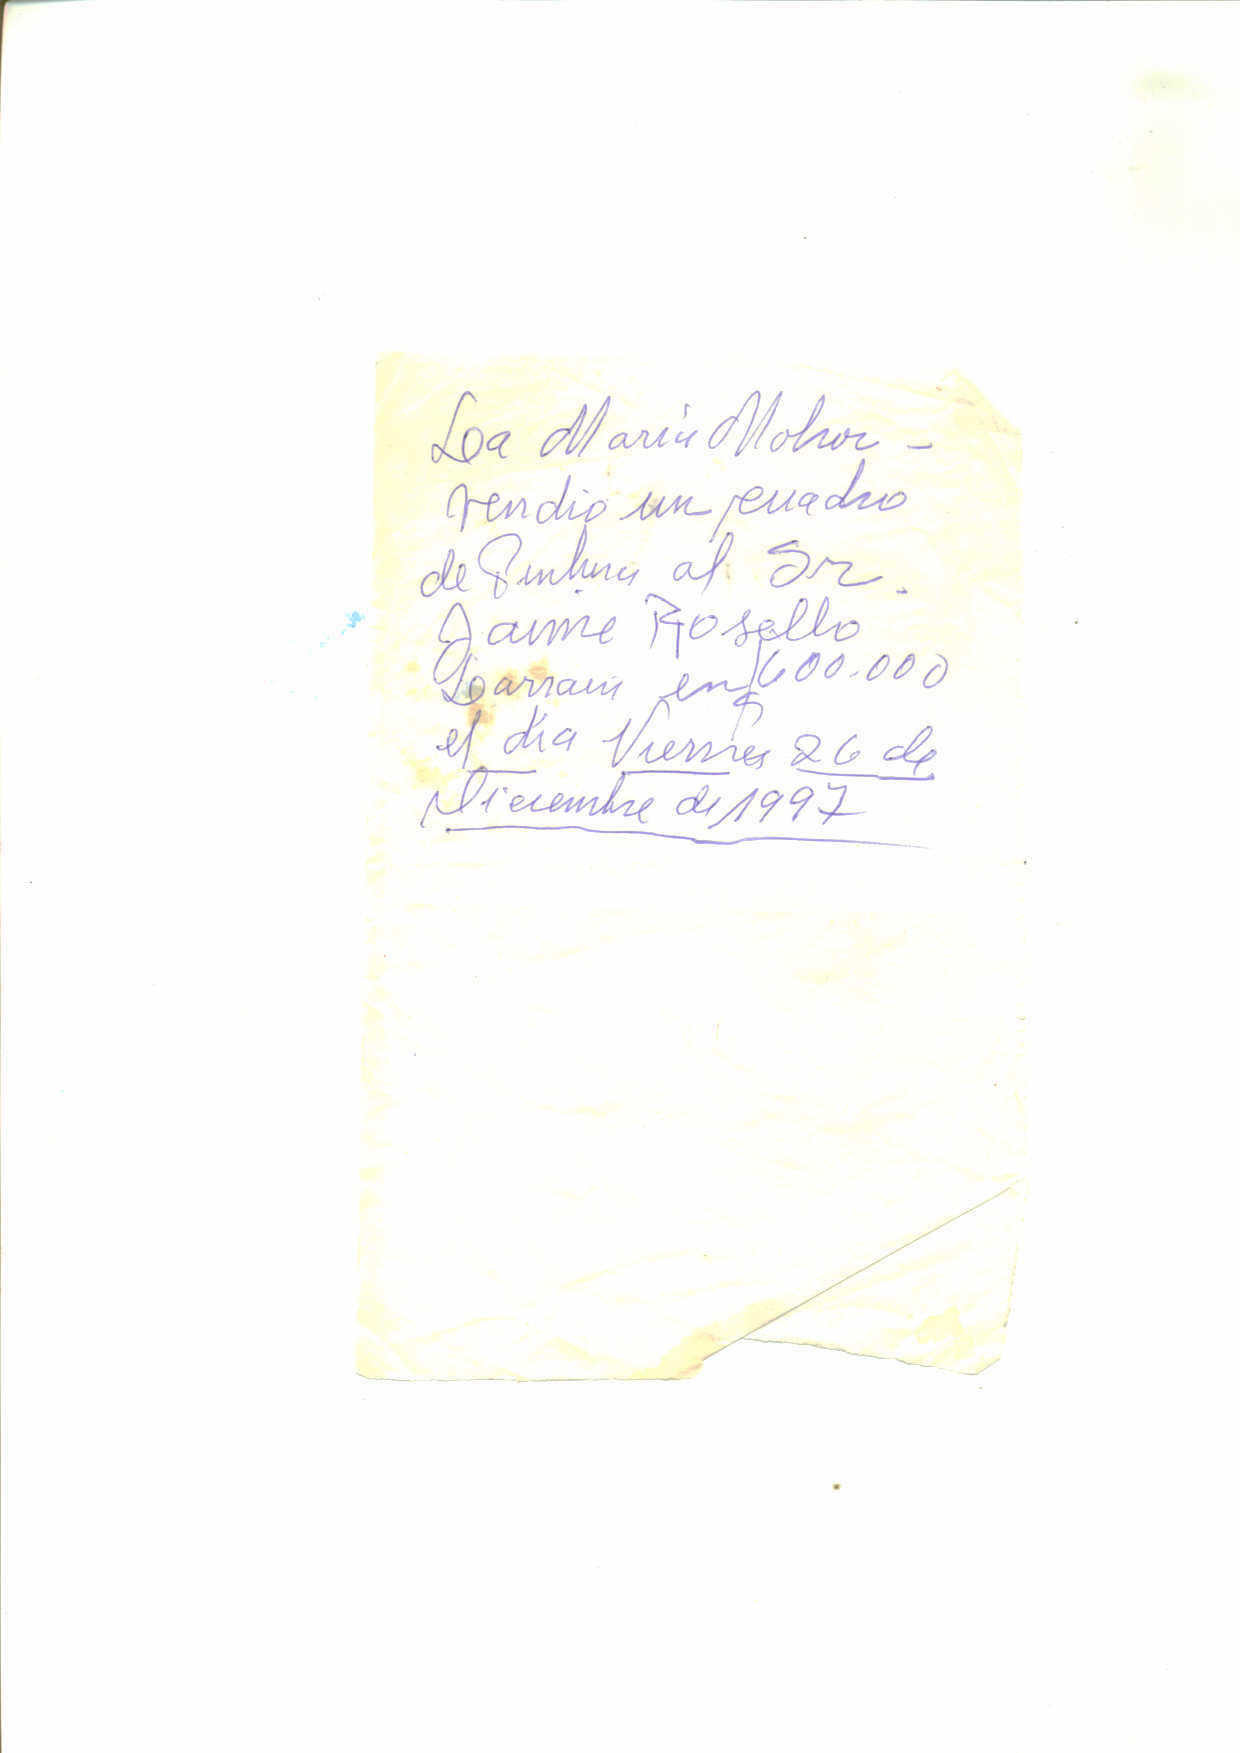 La Maria Mohor -
vendio un cuadro
de Pintura al Sr.
Jaime Rosello
Larrain en $600.000
el día Viernes 26 de
Diciembre de 1997